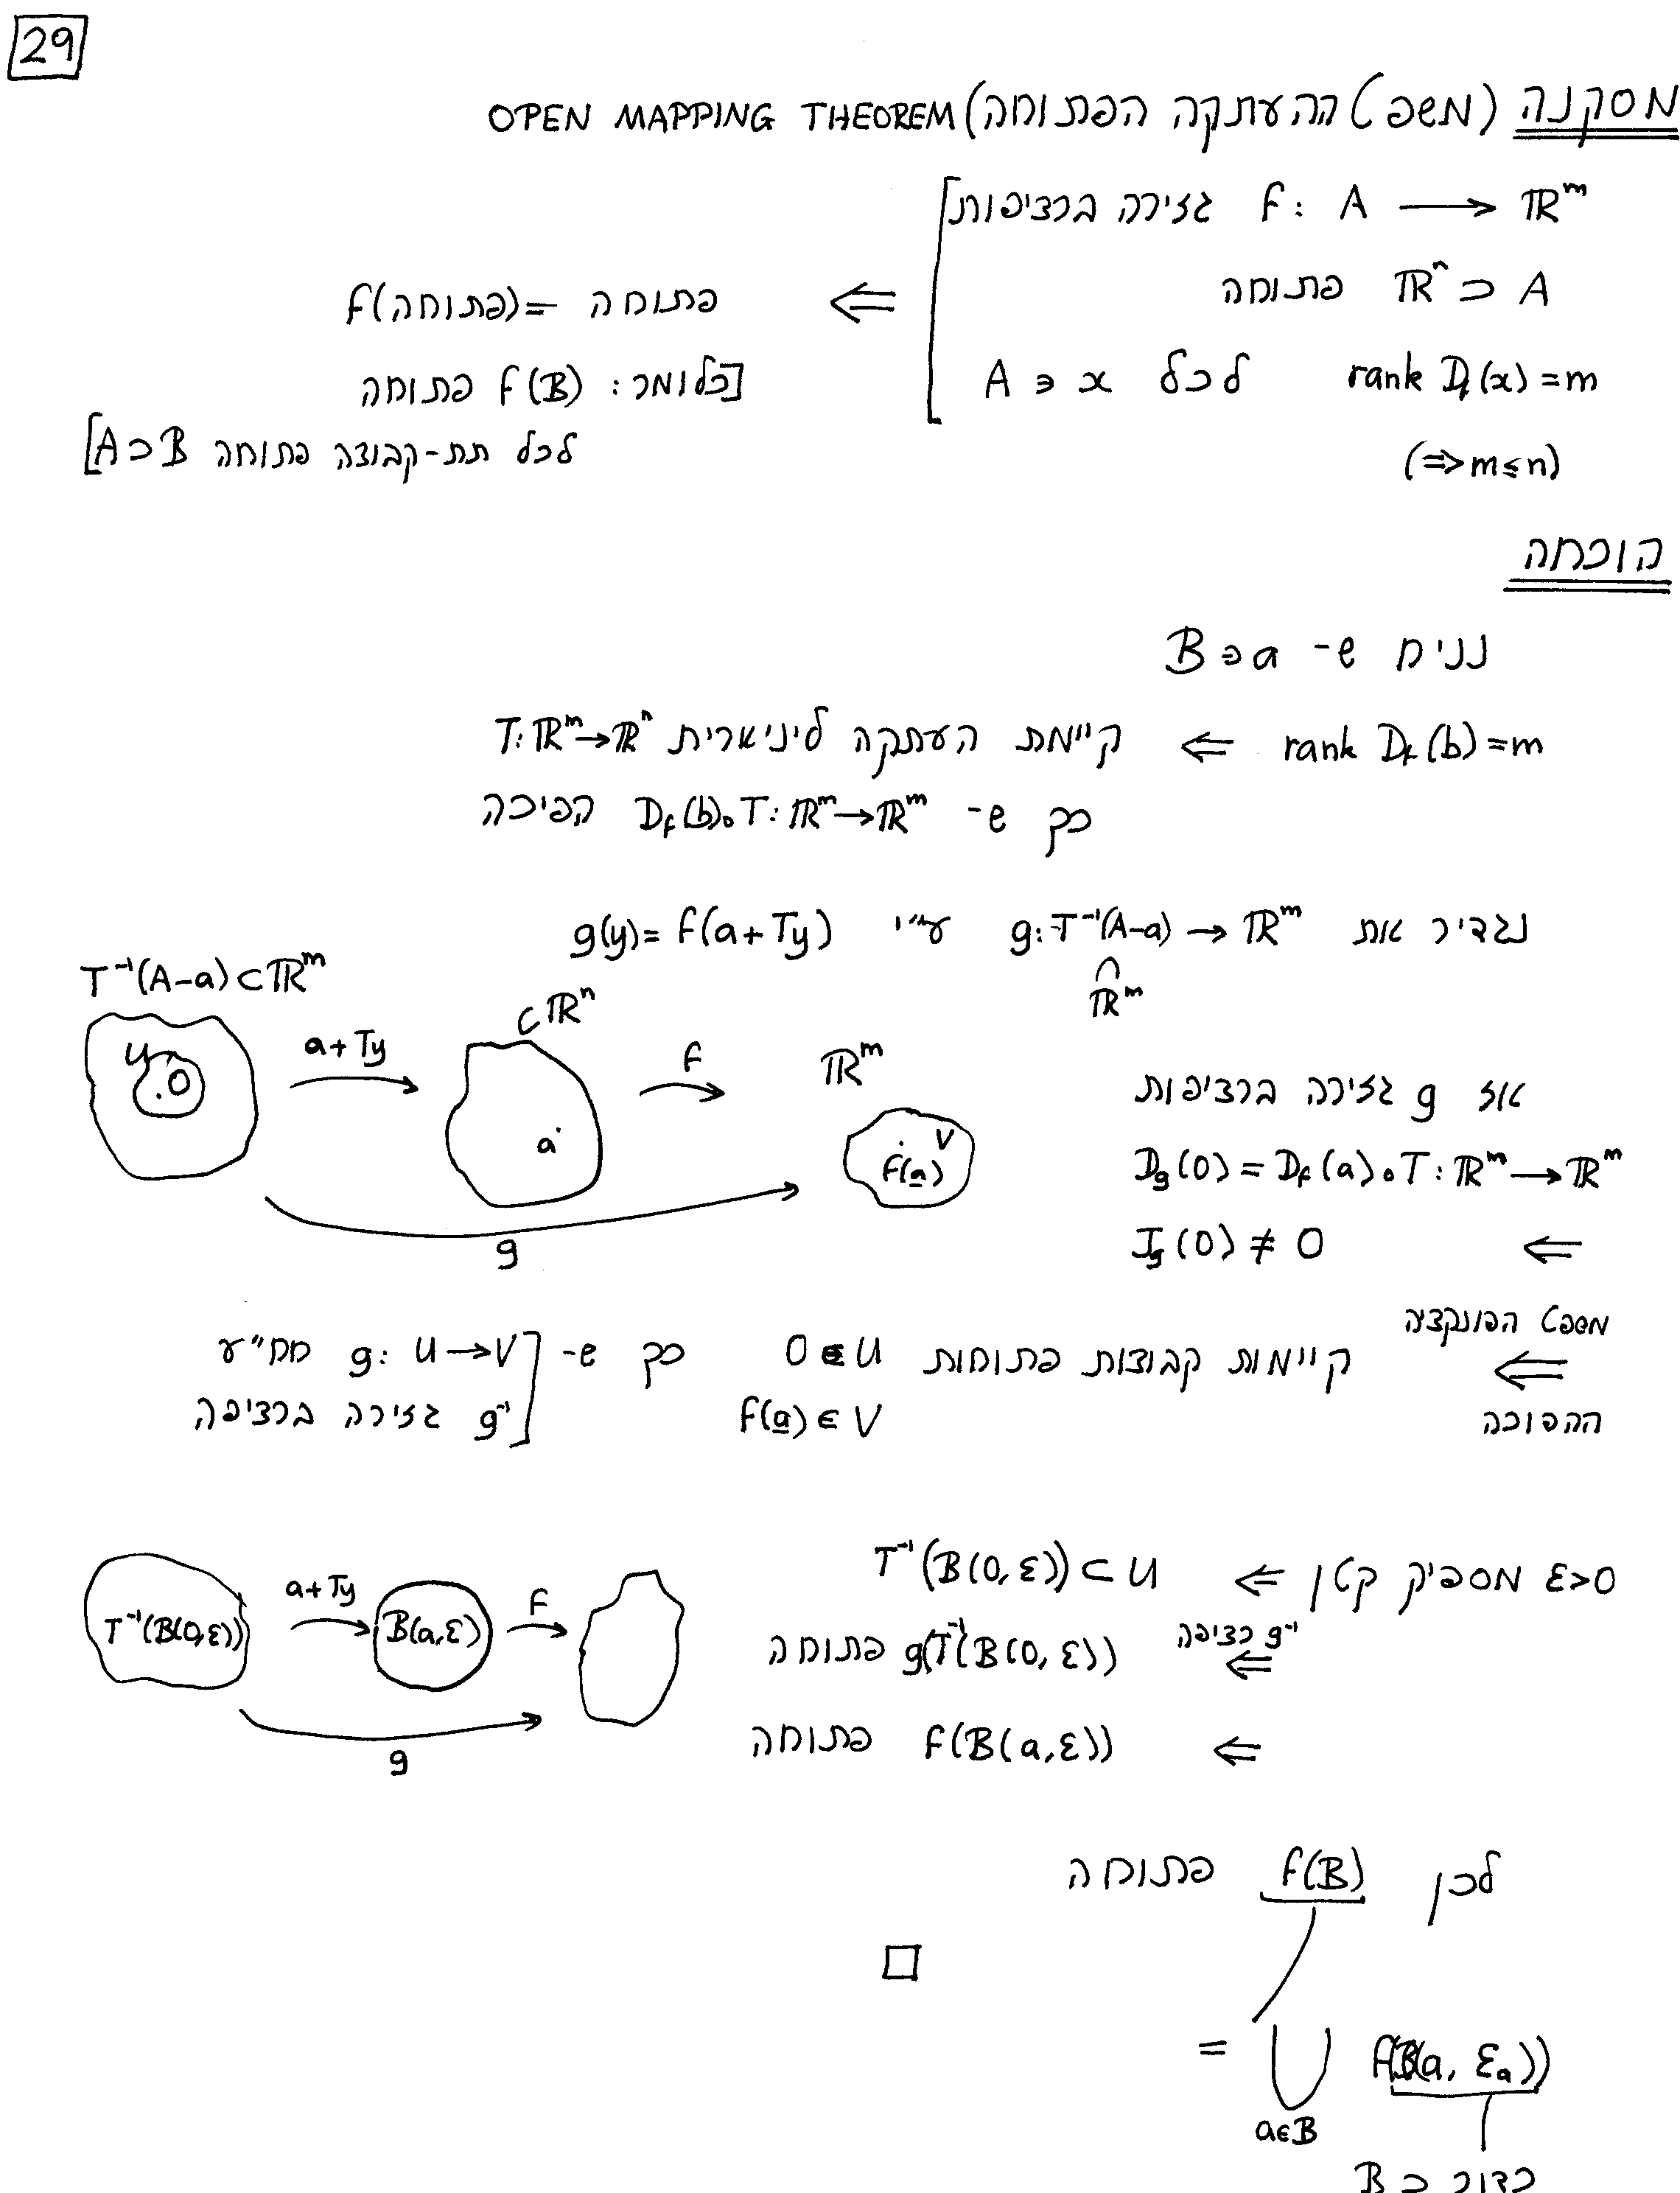 29
מסקנה (משפט ההעתקה הפתוחה) OPEN MAPPING THEOREM
f: A → ℝᵐ גזירה ברציפות
ℝⁿ ⊃ A פתוחה
rank D_f(x) = m לכל A ∋ x
(⇒ m ≤ n)
⇐ f(פתוחה) = פתוחה
[כלומר: f(B) פתוחה
לכל תת-קבוצה פתוחה A⊃B]
הוכחה
נניח ש- B∋a
rank D_f(b) = m ⇐ קיימת העתקה ליניארית T: ℝᵐ→ℝⁿ
כך ש- D_f(b)∘T: ℝᵐ→ℝᵐ הפיכה
נגדיר את g: T⁻¹(A-a) → ℝᵐ ע"י g(y) = f(a+Ty)
∩
ℝᵐ
T⁻¹(A-a) ⊂ ℝᵐ
⊂ ℝⁿ
ℝᵐ
U
.0
a+Ty
a
f
V
f(a)
g
אז g גזירה ברציפות
D_g(0) = D_f(a)∘T: ℝᵐ → ℝᵐ
⇐ J_g(0) ≠ 0
משפט הפונקציה
ההפוכה
⇐ קיימות קבוצות פתוחות 0 ∈ U כך ש- [g: U→V חח"ע
f(a) ∈ V
g⁻¹ גזירה ברציפה
ε>0 מספיק קטן ⇐ T⁻¹(B(0,ε)) ⊂ U
g⁻¹ רציפה
⇐ g(T⁻¹(B(0,ε)) פתוחה
⇐ f(B(a,ε)) פתוחה
T⁻¹(B(0,ε))
a+Ty
B(a,ε)
f
g
לכן f(B) פתוחה
□
= ⋃ f(B(a, εₐ))
a∈B
כדור ⊂ B